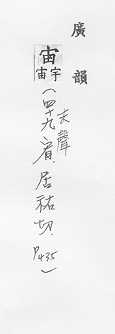 廣韻
宙
宇宙
（去聲四十九宥．居祐切．P435）